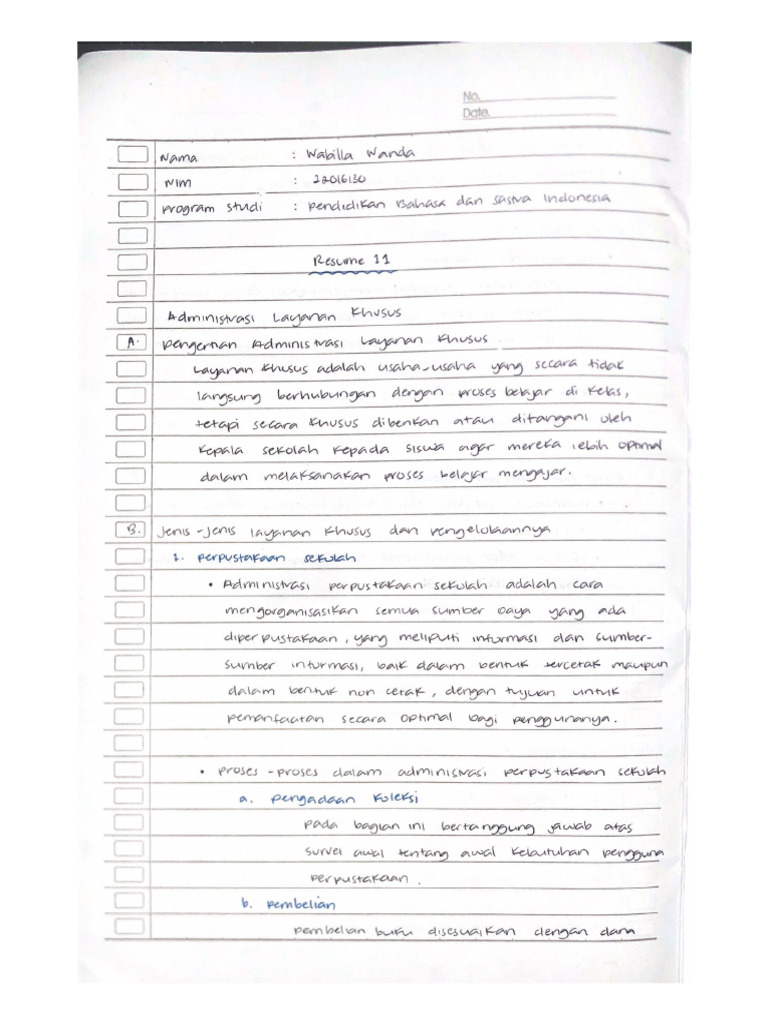 No.
Date.
Nama : Wabilla Wanda
NIM : 22016130
Program Studi : Pendidikan Bahasa dan Sastra Indonesia
Resume 11
Administrasi Layanan Khusus
A. Pengertian Administrasi Layanan Khusus
Layanan Khusus adalah usaha-usaha yang secara tidak
langsung berhubungan dengan proses belajar di kelas,
tetapi secara khusus diberikan atau ditangani oleh
kepala sekolah kepada siswa agar mereka lebih optimal
dalam melaksanakan proses belajar mengajar.
B. Jenis-jenis layanan khusus dan pengelolaannya
1. Perpustakaan sekolah
• Administrasi perpustakaan sekolah adalah cara
mengorganisasikan semua sumber daya yang ada
diperpustakaan, yang meliputi informasi dan sumber-
sumber informasi, baik dalam bentuk tercetak maupun
dalam bentuk non cetak, dengan tujuan untuk
pemanfaatan secara optimal bagi penggunanya.
• Proses-proses dalam administrasi perpustakaan sekolah
a. Pengadaan Koleksi
pada bagian ini bertanggung jawab atas
survei awal tentang awal kebutuhan pengguna
perpustakaan.
b. Pembelian
pembelian buku disesuaikan dengan dana